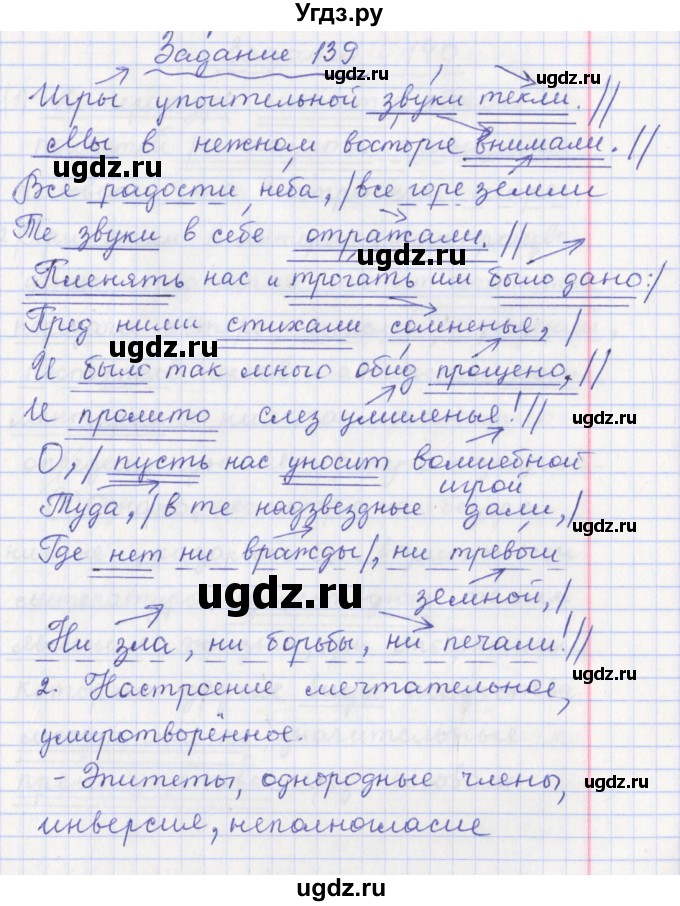 Угдз.ру
Задание 139
ugdz.ru ugdz.ru
Игры упоительной звуки текли. //
ugdz.ru
Мы в нежном восторге внимали. //
ugdz.ru
Все радости неба, / все горе земли
ugdz.ru
Те звуки в себе отражали. //
Пленять нас и трогать им было дано: /
Пред ними стихали сомненья, /
ugdz.ru ugdz.ru
И было так много обид прощено, //
И пролито слез умиленья! //
ugdz.ru
О, / пусть нас уносит волшебной
игрой
Туда, / в те надзвездные дали, /
ugdz.ru
Где нет ни вражды /, ни тревоги
ugdz.ru
земной, /
Ни зла, ни борьбы, ни печали! //
ugdz.ru
2. Настроение мечтательное,
умиротворённое.
- Эпитеты, однородные члены,
ugdz.ru
инверсия, неполногласие
ugdz.ru